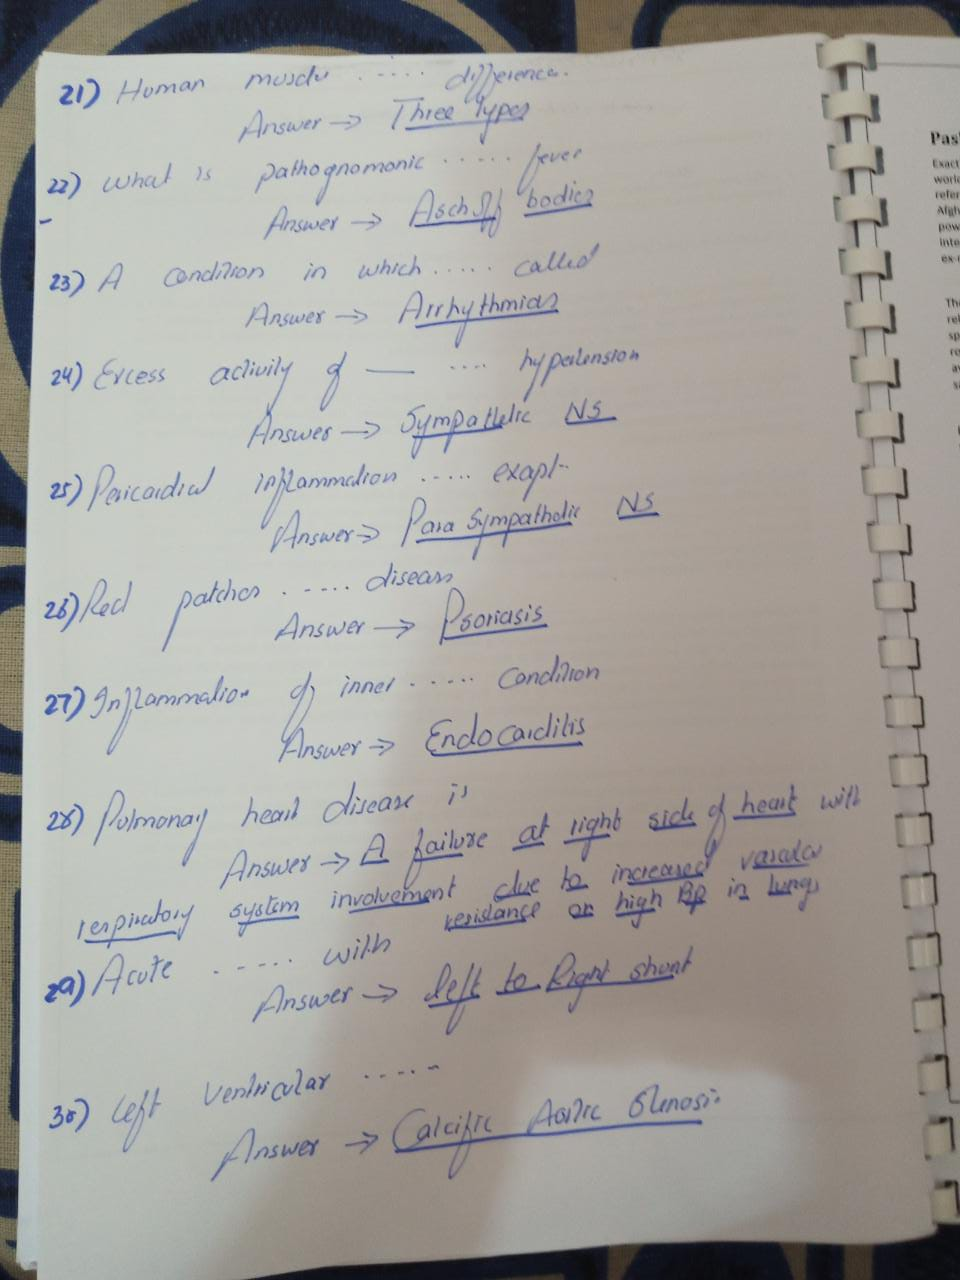 21) Human muscle ..... difference.
Answer → Three Types
22) What is pathognomonic ..... fever
Answer → Aschoff bodies
23) A condition in which ..... called
Answer → Arrhythmias
24) Excess activity of — .... hypertension
Answer → Sympathetic NS
25) Pericardial inflammation ..... exapt.
Answer → Para Sympathetic NS
26) Red patches ..... disease
Answer → Psoriasis
27) Inflammation of inner ..... condition
Answer → Endocarditis
28) Pulmonary heart disease is
Answer → A failure at right side of heart with
respiratory system involvement due to increased vascular
resistance or high BP in lungs
29) Acute ..... with
Answer → left to Right shunt
30) Left ventricular .....
Answer → Calcific Aortic Stenosis
Pas
Exact
worl
refer
Afgh
pow
inte
ex-
Th
rel
sp